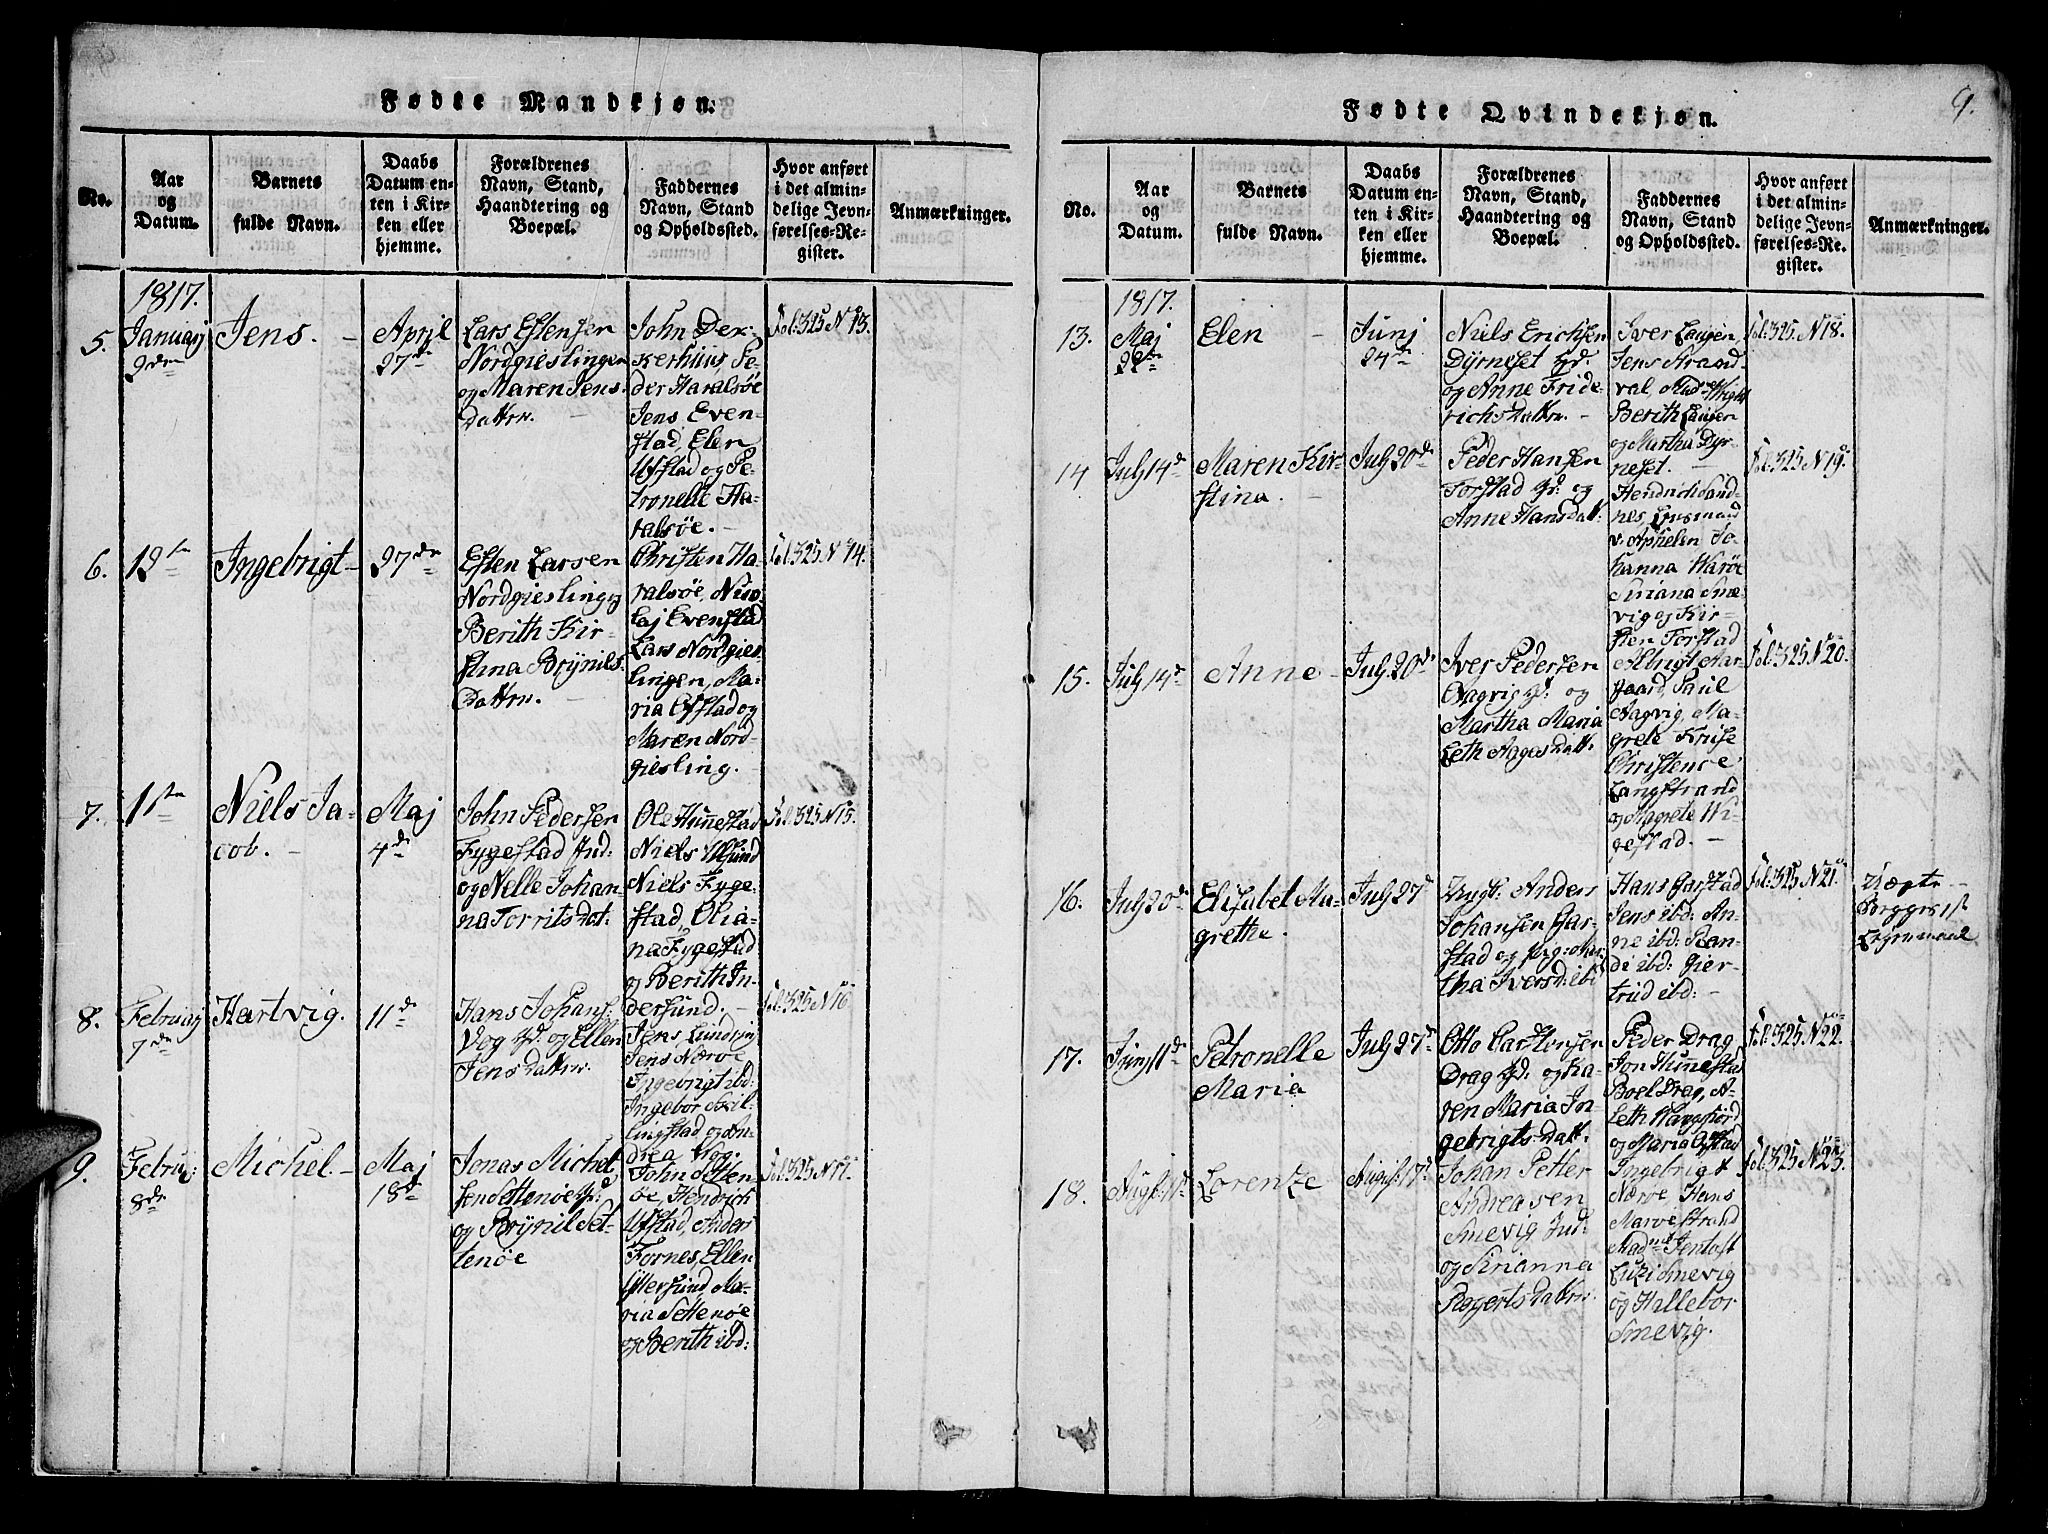 Fødte Mandkjøn.
No.
Aar
og
Datum.
Barnets
fulde Navn.
Daabs
Datum en-
ten i Kir-
ken eller
hjemme.
Forældrenes
Navn, Stand,
Haandtering og
Boepæl.
Faddernes
Navn, Stand
og Opholdssted.
Hvor anført
i det almin-
delige Jevn-
førelses-Re-
gister.
Anmærkninger.
1817.
5.
Januarj
9den
Jens.
April
27de
Lars Estensen
Nordgieslingen
og Maren Jens
Datter.
John Dex-
kerhuus, Pe-
der Haralsøe
Jens Even-
stad, Elen
Ufstad og Pe-
tronelle Ha-
ralsøe.
Fol: 325 N 13.
6.
19te
Ingebrigt
27de
Esten Larsen
Nordgieslingog
Berith Kir-
stina Brÿnils
Datter.
Christen Ha-
ralsøe, Nico
laj Evenstad
Lars Nordgies
lingen, Ma-
ria Ofstad og
Maren Nord-
giesling.
Fol: 325 N 14.
7.
11te
Niels Ja-
cob.
Maj
4de
John Pedersen
Fygestad Ind:
og Nelle Johan-
na Torrits Dat:
Ole Hunnestad
Niels Ulsund
Niels Fyge-
stad, Olia-
na Fygestad
og Berith In-
dersund.
Fol: 325 N 15.
8.
Februarj
7de
Hartvig.
11de
Hans Johans:
Vog Gd: og Ellen
Jens Datter.
Jens Lundring
Jens Nærve
Ingevrigt ibd:
Ingebor Skil-
lingstad og An-
drea Vog.
Fol: 325 N 16
9.
Febru:
8de
Michel
Maj
18de
Jonas Michel
sen Settenøe Gd:
og Brÿnil Set-
tenøe
John Setten
øe, Hendrich
Ufstad, Anders
Fornes, Ellen
Yttersund, Ma-
ria Settenøe
og Berith ibd:
Fol: 325 N 17.
9.
Fødte Qvindekjøn.
No.
Aar
og
Datum.
Barnets
fulde Navn.
Daabs
Datum en-
ten i Kir-
ken eller
hjemme.
Forældrenes
Navn, Stand,
Haandtering og
Boepæl.
Faddernes
Navn, Stand
og Opholdssted.
Hvor anført
i det almin-
delige Jevn-
førelses-Re-
gister.
Anmærkninger.
1817.
13.
Maj
22de
Elen
Junj
24de
Niels Erichsen
Dÿrneset Gd:
og Anne Fride
richs Datter.
Iver Laugen,
Jens Strand-
val, Madme Wight
Berith Laugen
og Martha Dyr-
neset.
Fol: 325 N 18.
14
July 14d
Maren Kir-
stina.
July 20d
Peder Hansen
Forstad Gd: og
Anne Hans Datt:
Hendrich Sand-
nes, Ensmand
v: Aphelen Jo-
hanna Harøe
Siriana Smæ-
vig og Kir-
sten Forstad
Fol: 325 N 19.
15.
July 14d
Anne
July 20d
Iver Pedersen
Aagvig Gd: og
Martha Maria
Leth Aages Datt:
Albrigt Aar-
gaard, Paul
Aagvig, Ma-
grete Kruse
Christence
Langstrand
og Magrete Wi-
gestad.
Fol: 325 N 20.
16.
July 20d
Elisabet Ma-
grethe.
July 27d
Ungk: Anders
Johansen Gar-
stad og Pig: Mar
tha Ivers D: ibd
Hans Garstad
Jens ibd: An-
ne ibd: Ran-
di ibd: Gier-
trud ibd:
Fol: 325 N 21.
Uægte
Legermaal
17.
Junj 11d
Petronelle
Maria
July 27d
Otto Carstensen
Drag Gd: og Ka-
ren Maria In-
gebrigts Datt.
Peder Drag
Jon Hunnestad
Boel Drag, A-
leth Haugsfiord
og Maria Ofstad
Fol: 325 N 22.
18.
Augst: 11d
Lorentze
August 17d
Johan Petter
Andreasen
Smevig Ind:
og Sirianna
Rogerts Datter
Ingebrigt
Nærve, Hans
Marvestrand
Madme Jentoft
Luzi Smevig
og Hallebor
Smevig.
Fol: 325 N 23.